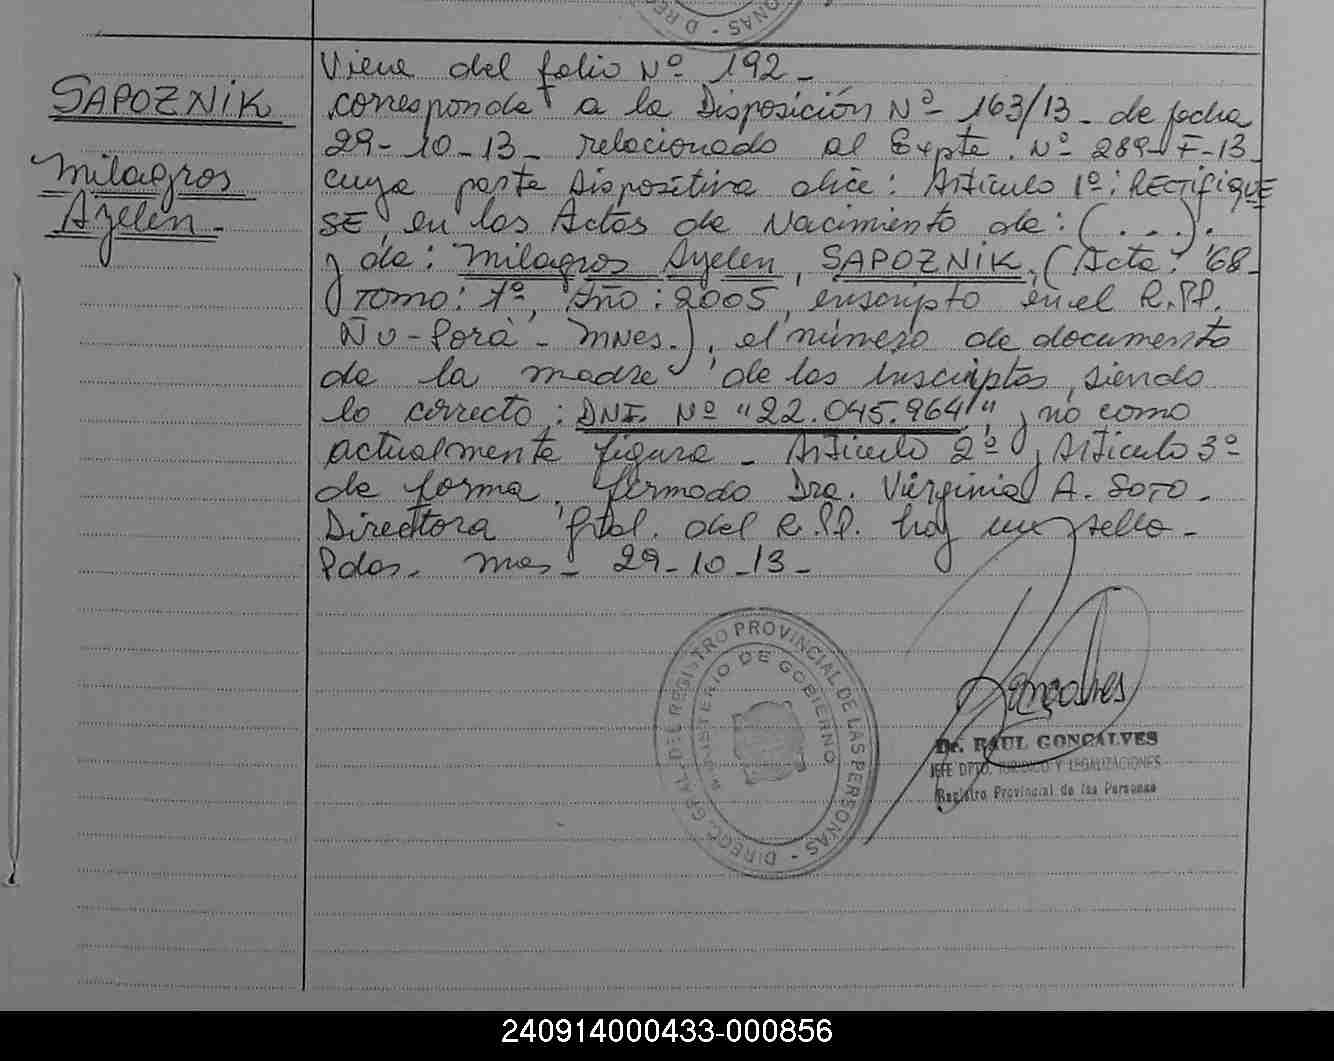 SAPOZNIK
Milagros
Ayelen.-
Viene del folio Nº 192-
corresponde a la Disposición Nº- 163/13- de fecha
29-10-13- relacionado al Expte. Nº- 289-F-13-
cuya parte Dispositiva dice: Artículo 1º: RECTIFIQUE
SE, en las Actas de Nacimiento de: (...).
y de: Milagros Ayelen, SAPOZNIK, (Acta: 68-
Tomo: 1º, Año: 2005, inscripto en el R.PP.
Ñu-Porá - Mnes.), el número de documento
de la madre de los inscriptos, siendo
lo correcto: DNI. Nº "22.045.964", y no como
actualmente figura - Artículo 2º y Artículo 3º-
de forma. firmado Dra. Virginia A. SOTO.
Directora Gral. del R.PP. hay un sello-
Pdas. Mnes- 29-10-13-
DIRECC GRAL. DEL REGISTRO PROVINCIAL DE LAS PERSONAS -
MINISTERIO DE GOBIERNO
Goncalves
Dr. RAUL GONCALVES
JEFE DPTO. JURIDICO Y LEGALIZACIONES
Registro Provincial de las Personas
240914000433-000856